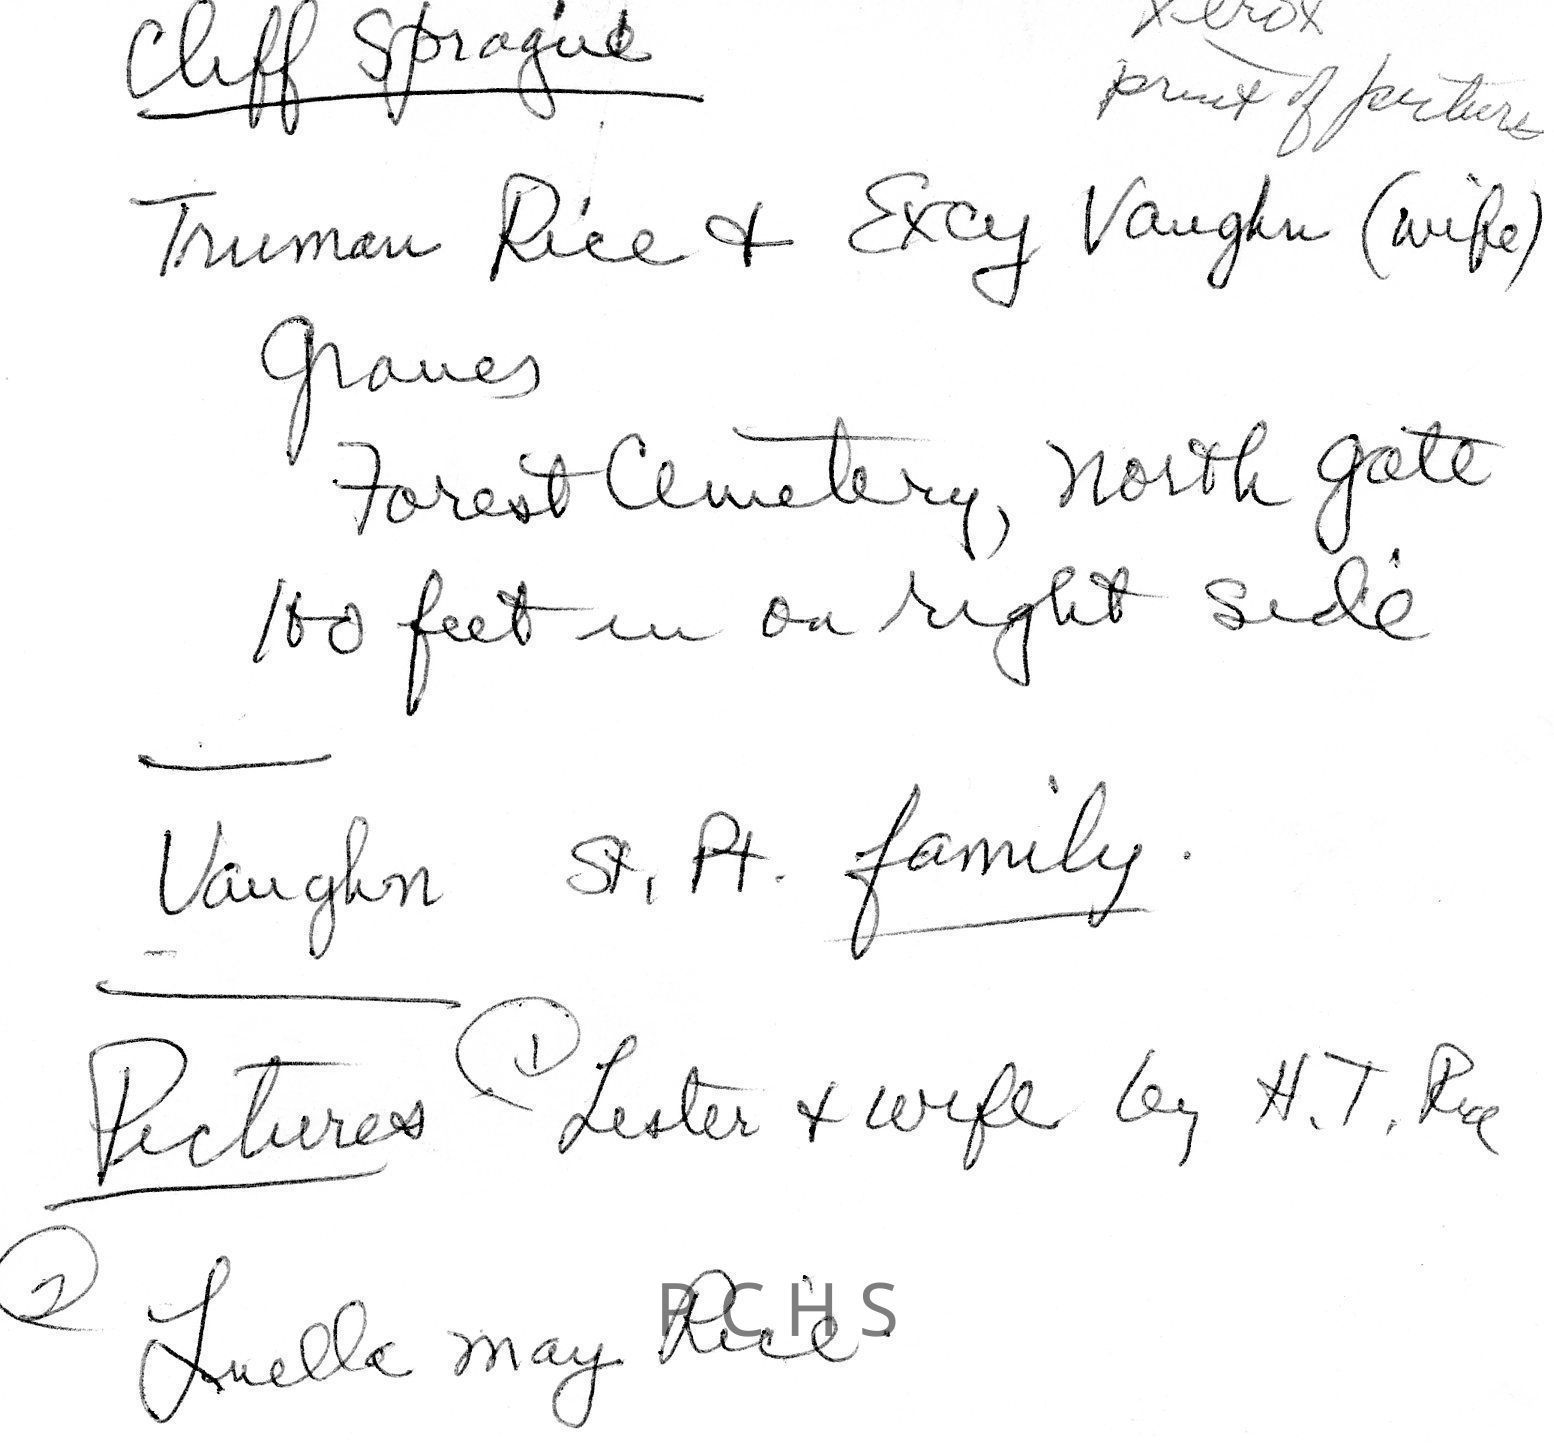 Cliff Sprague
xerox
print of picture
Truman Rice & Excy Vaughn (wife)
Graves
Forest Cemetery, North gate
100 feet in on right side
Vaughn St. Pt. family.
Pictures ① Lester & wife by H.T. Rice
② Luella May Rice
PCHS